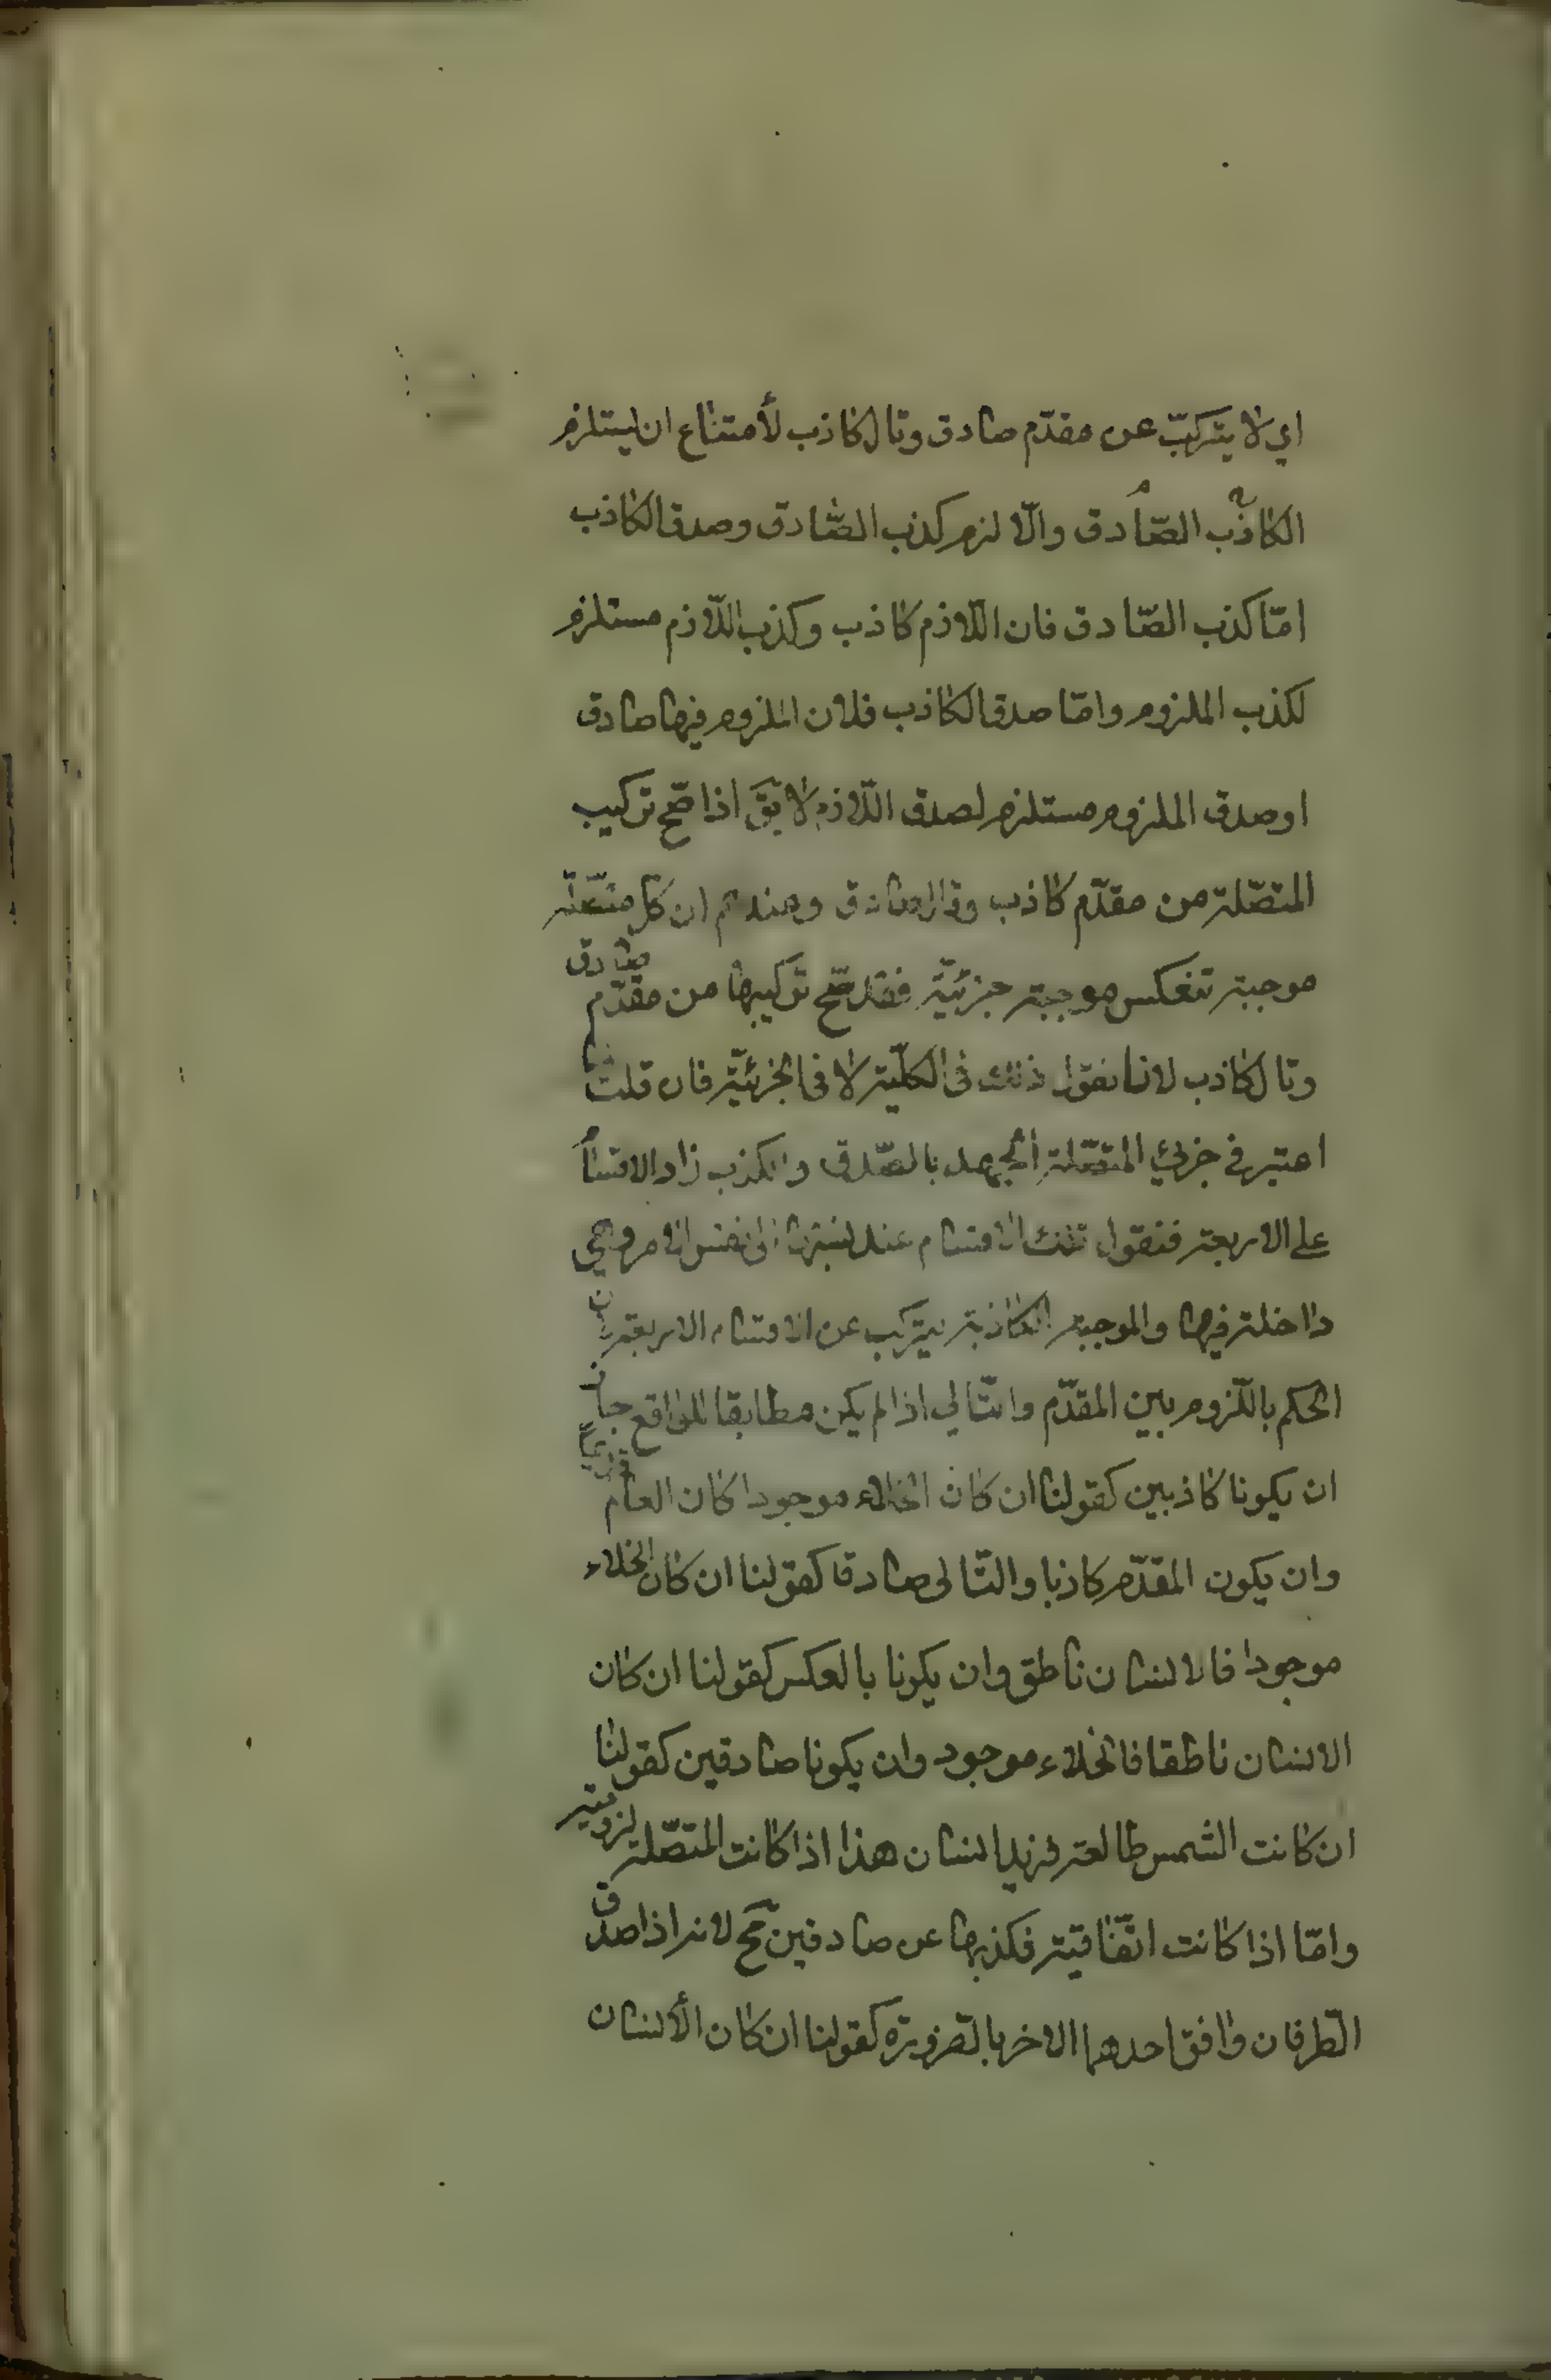 اي لا يتركبّ عن مقدّم صادق وتال كاذب لأمتناع ان يستلزم
الكاذب الصّادق والّا لزم كذب الصّادق وصدق الكاذب
امّا كذب الصّادق فان اللّازم كاذب وكذب اللّازم مستلزم
لكذب الملزوم وامّا صدق الكاذب فلان الملزوم فيها صادق
اوصدق الملزوم مستلزم لصدق اللّازم لا يقَ اذا صّح تركيب
المتصّلة من مقدّم كاذب وتال صادق وعندهم ان كلّ متصّلة
موجبة تنعكس موجبة جزئيّة فقد صّح تركيبها من مقدّم صادق
وتال كاذب لانا نقول ذلك فى الكلّية لا فى الجزئيّة فان قلت
اعتبر في جزئي المتصّلة الجهل بالصّدق والكذب زاد الاقسا
على الاربعة فنقول تلك الاقسام عند نسبتها الى نفس الامر وهي
داخلة فيها والموجبة الكاذبة يتركب عن الاقسام الاربعة
الحكم بالّلزوم بين المقدّم والتّالي اذا لم يكن مطابقا للواقع جاز
ان يكونا كاذبين كقولنا ان كان الخلاء موجودا كان العالم قديماً
وان يكون المقدّم كاذبا والتّالى صادقا كقولنا ان كان الخلاء
موجودا فالانسان ناطق وان يكونا بالعكس كقولنا ان كان
الانسان ناطقا فالخلاء موجود وان يكونا صادقين كقولنا
ان كانت الشمس طالعة فزيد انسان هذا اذا كانت المتصّلة لزومية
وامّا اذا كانت اتّفاقية فكذبها عن صادقين مح لانه اذا صدق
الطّرفان وافق احدهما الاخر بالضرورة كقولنا ان كان الأنسان